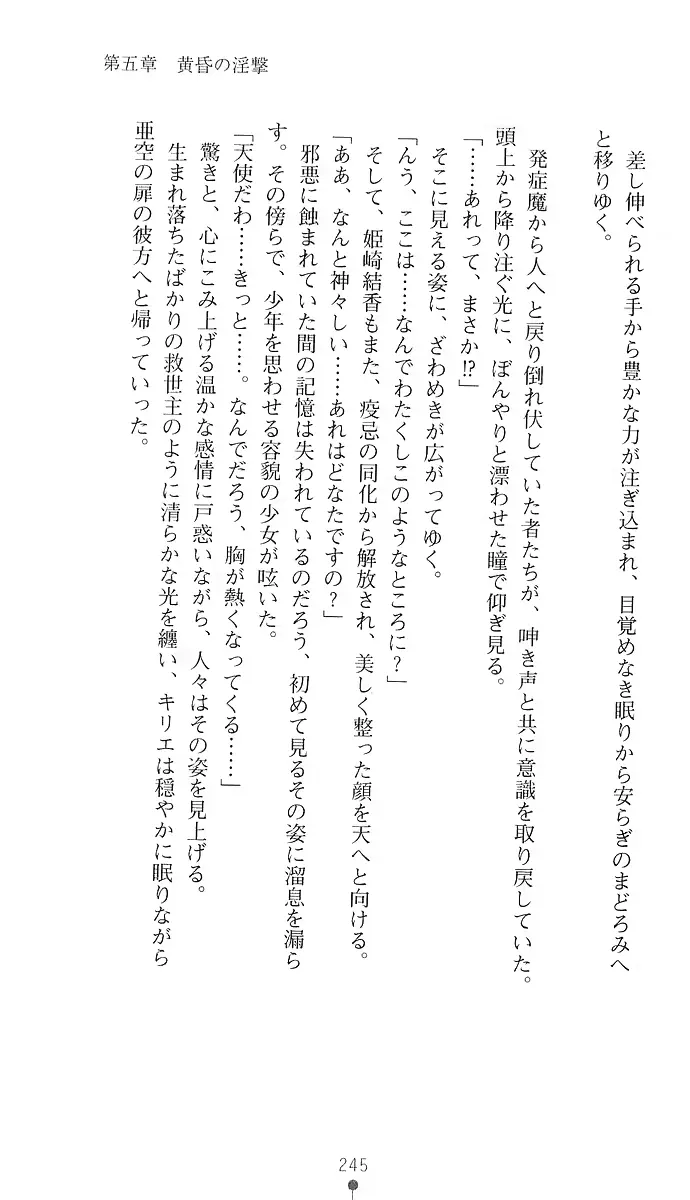 第五章　黄昏の淫撃
差し伸べられる手から豊かな力が注ぎ込まれ、目覚めなき眠りから安らぎのまどろみへ
と移りゆく。
発症魔から人へと戻り倒れ伏していた者たちが、呻き声と共に意識を取り戻していた。
頭上から降り注ぐ光に、ぼんやりと漂わせた瞳で仰ぎ見る。
「……あれって、まさか!?」
そこに見える姿に、ざわめきが広がってゆく。
「んう、ここは……なんでわたくしこのようなところに？」
そして、姫崎結香もまた、疫忌の同化から解放され、美しく整った顔を天へと向ける。
「ああ、なんと神々しい……あれはどなたですの？」
邪悪に蝕まれていた間の記憶は失われているのだろう、初めて見るその姿に溜息を漏ら
す。その傍らで、少年を思わせる容貌の少女が呟いた。
「天使だわ……きっと……。なんでだろう、胸が熱くなってくる……」
驚きと、心にこみ上げる温かな感情に戸惑いながら、人々はその姿を見上げる。
生まれ落ちたばかりの救世主のように清らかな光を纏い、キリエは穏やかに眠りながら
亜空の扉の彼方へと帰っていった。
245